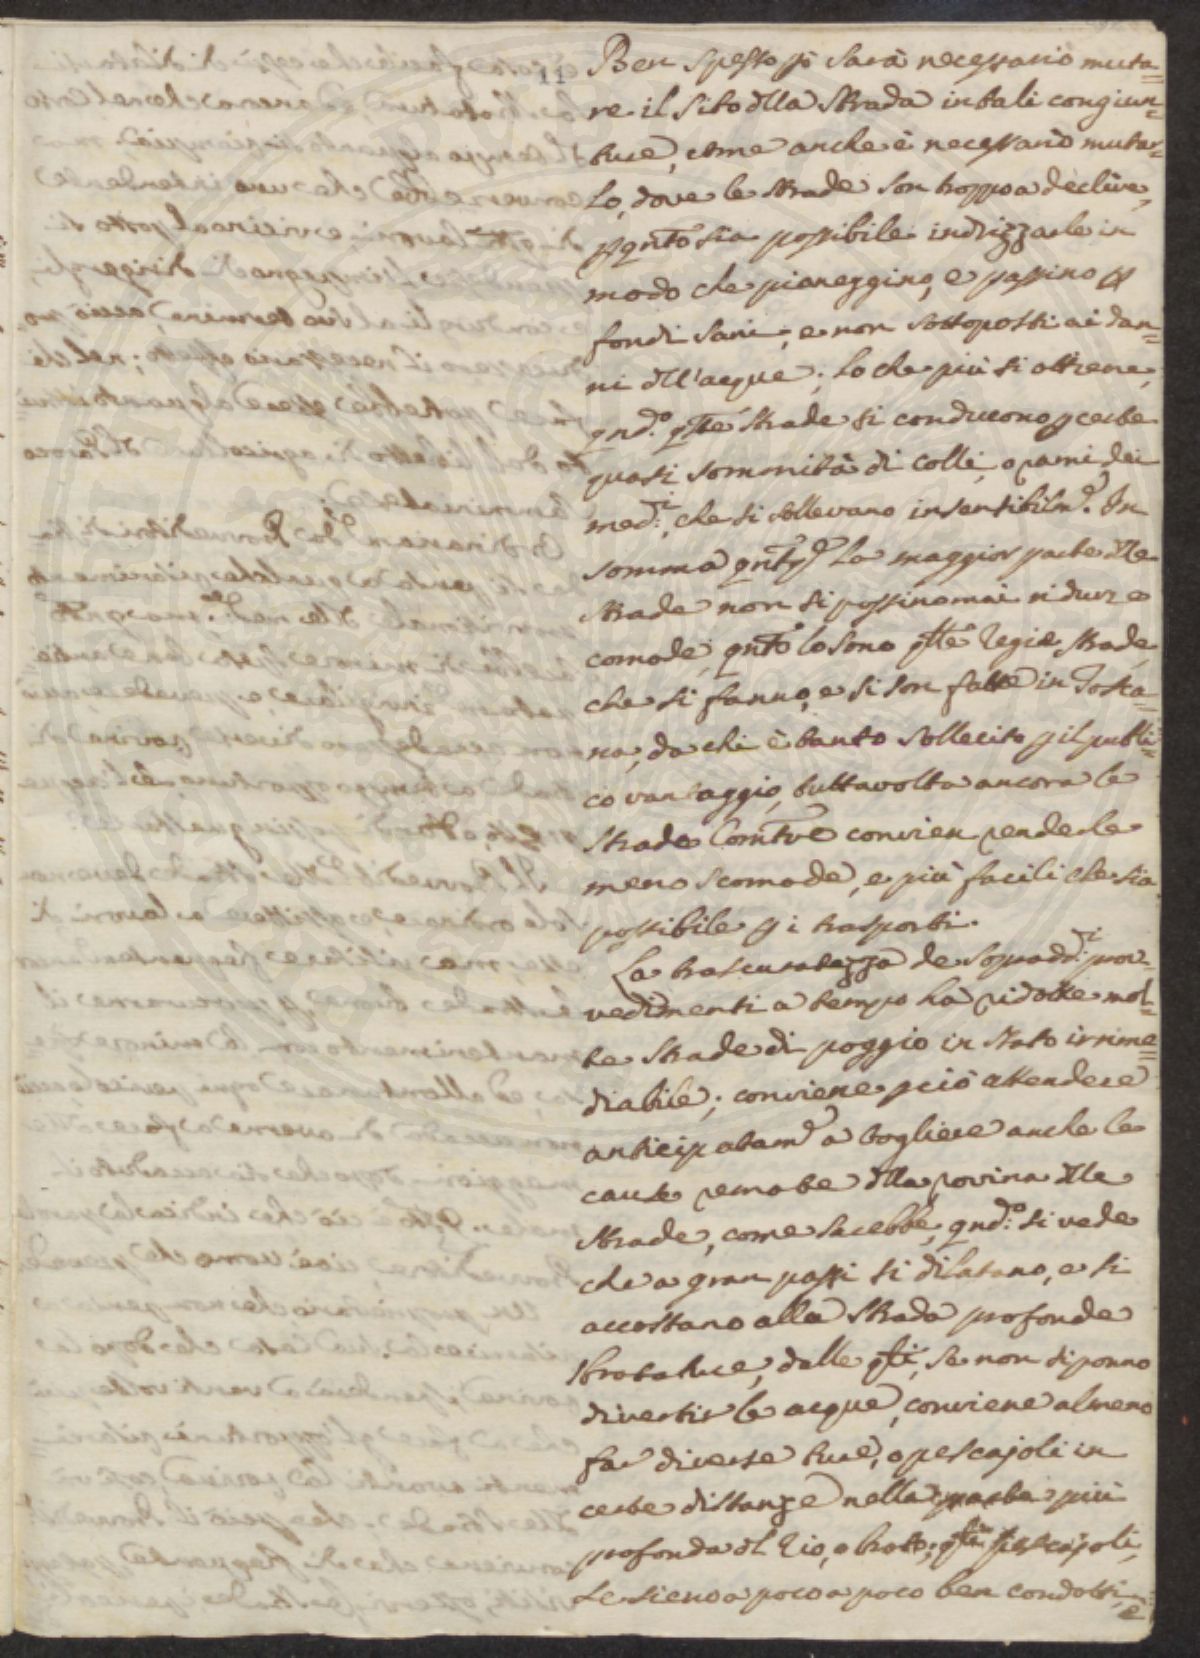 11
Ben spesso si sarà necessario muta=
re il sito dlla strada in tali congiun=
ture, come anche è necessario mutar=
lo, dove le strade son troppo a declive,
p qnto sia possibile indrizzarle in
modo che pianeggino, e passino p
fondi sani, e non sottoposti ai dan=
ni dll'acque; lo che più si ottiene,
qndo. qste strade si conducono p certe
quasi sommità di colli, o rami dei
medi:, che si sollevano insensibilme. In
somma qntq la maggior parte dlle
strade non si possino mai ridurre
comode, qnto lo sono qlle Regie strade,
che si fanno, e si son fatte in Tosca=
na, da chi è tanto sollecito p il publi=
co vantaggio, tuttavolta ancora le
strade Comtve convien renderle
meno scomode, e più facili che sia
possibile p i trasporti.
La trascuratezza de sopraddi: prov=
vedimenti a tempo ha ridotte mol=
te strade di poggio in stato irrime=
diabile; conviene pciò attendere
anticipatame a togliere anche le
cause remote dlla rovina dlle
strade, come sarebbe, qndo: si vede
che a gran passi si dilatano, e si
accostano alla strada profonde
strotature, dalle qli, se non si ponno
divertir le acque, conviene almeno
far diverse ture, o pescajoli in
certe distanze nella parte più
profonda dl Rio, o brotto; qsti pescajoli,
se sieno a poco a poco ben condotti, e